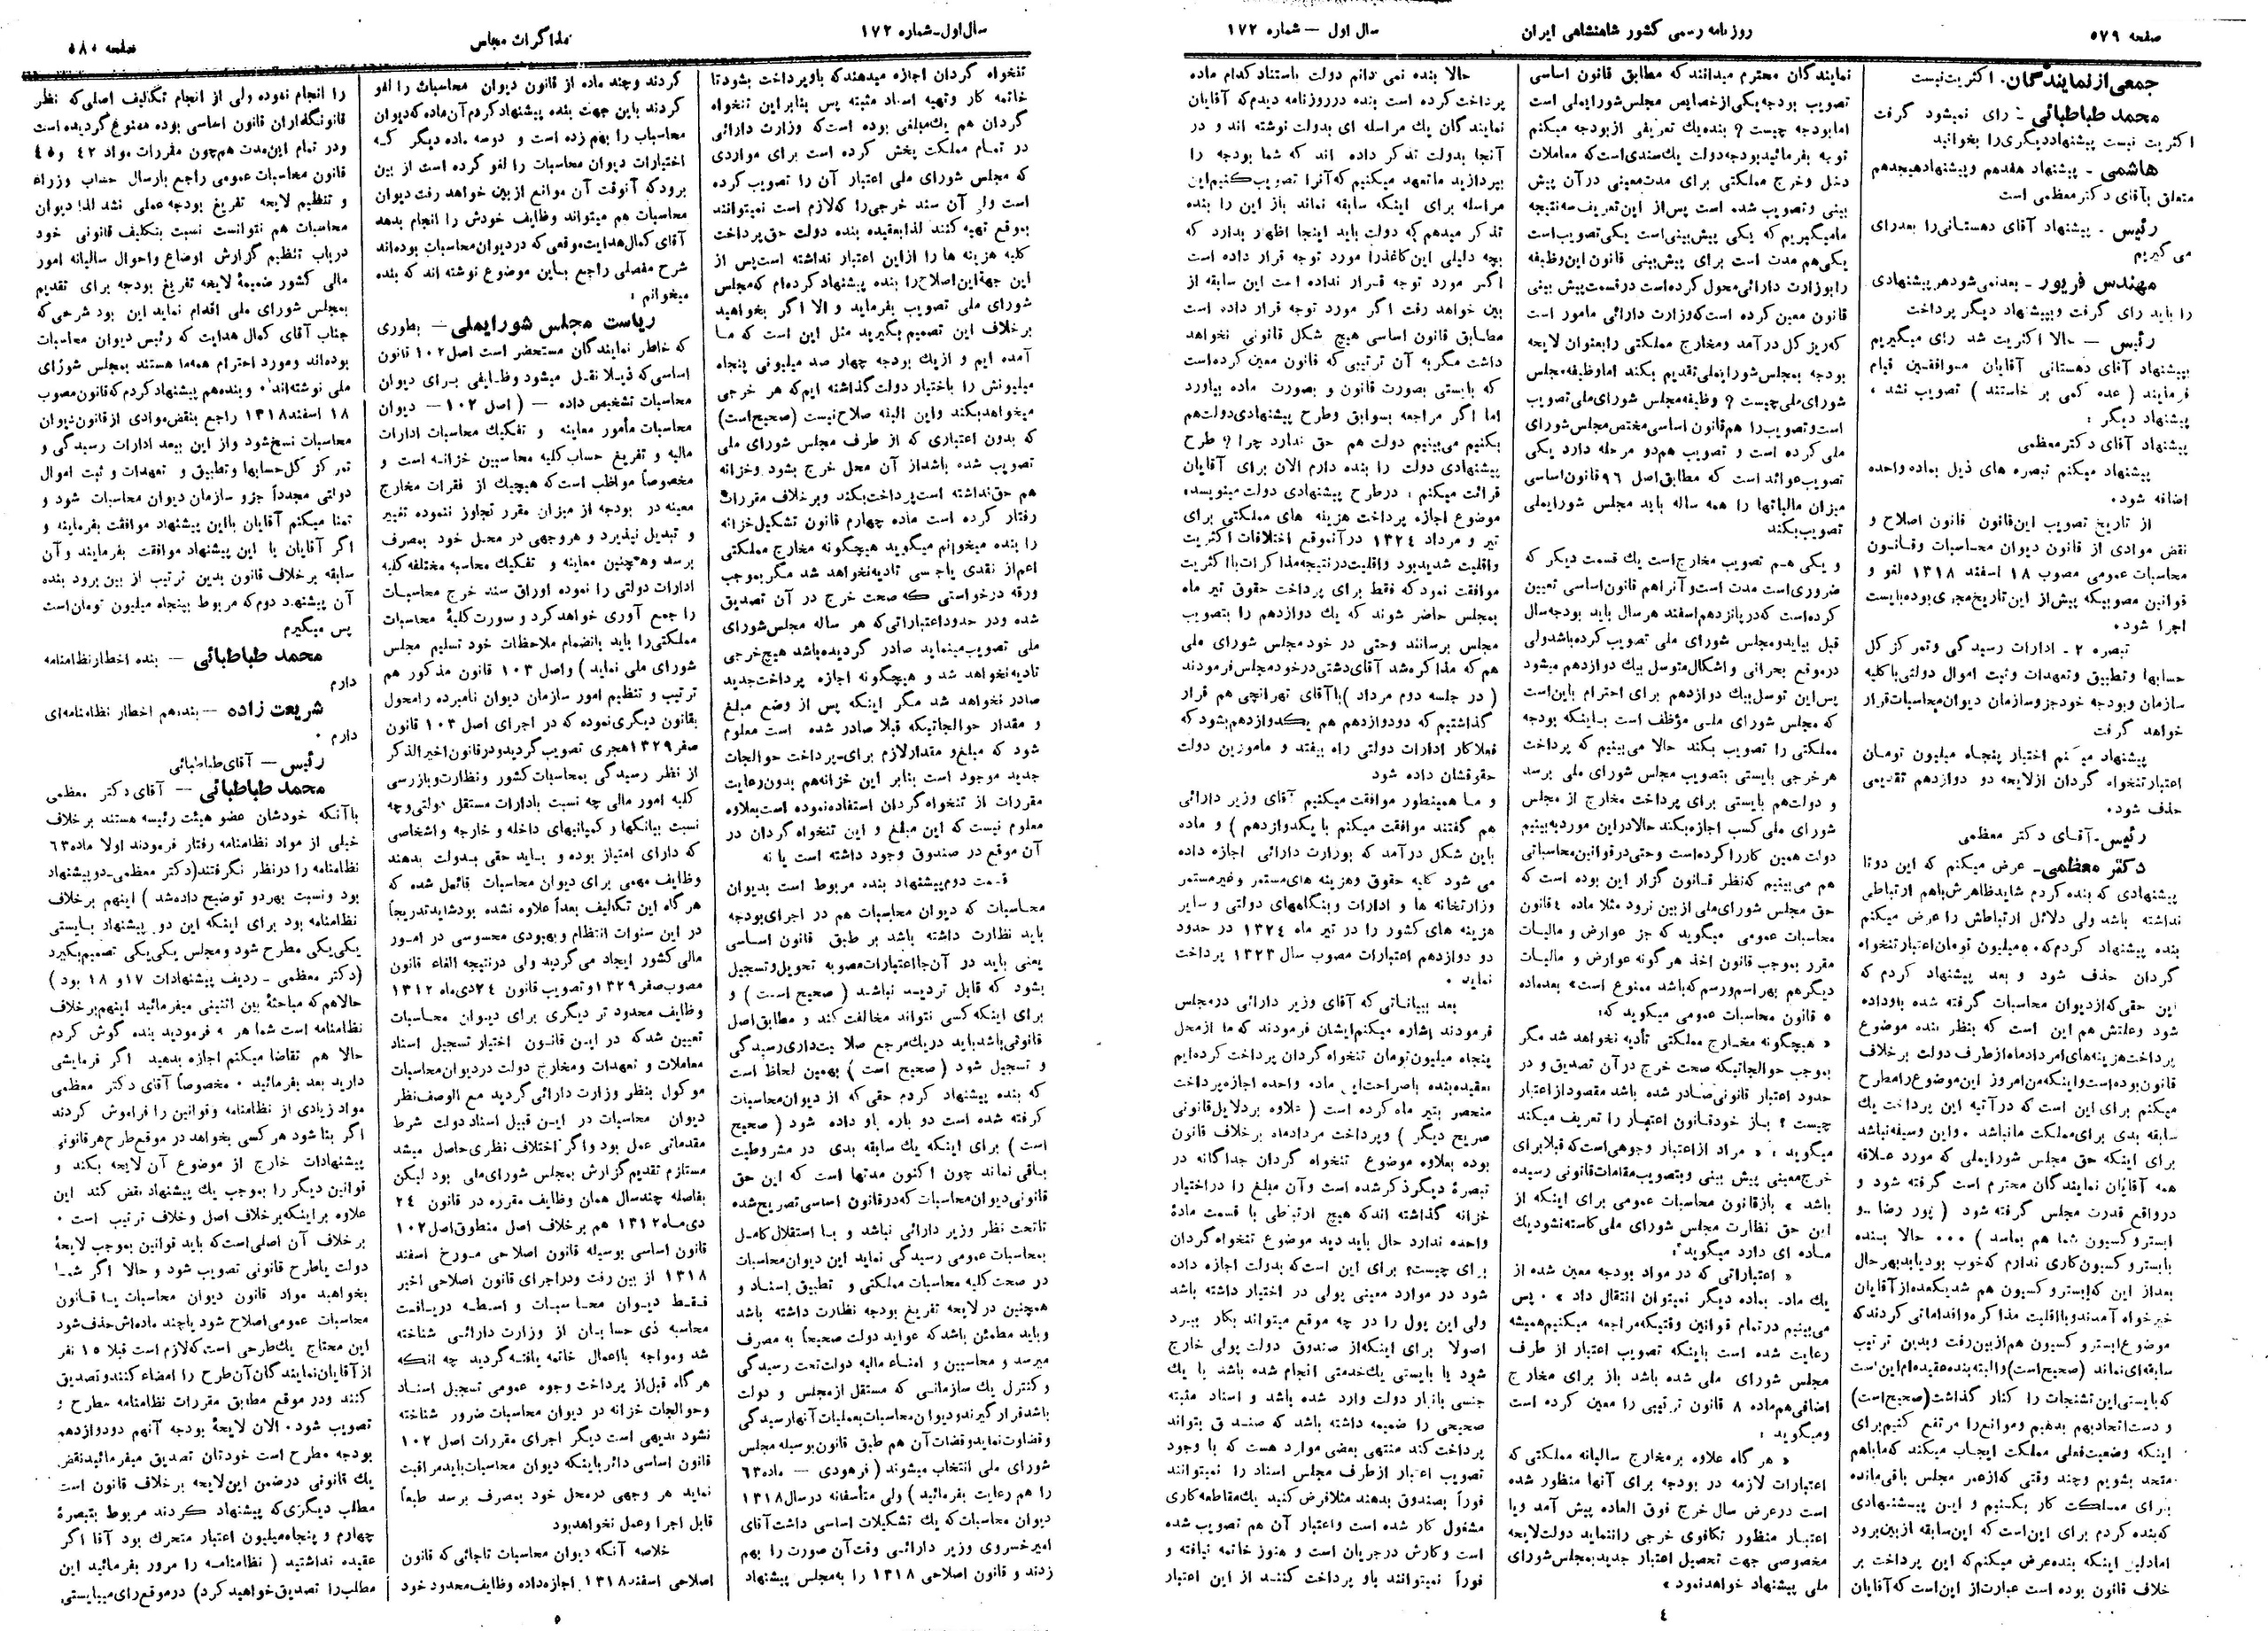 صفحه ۵۷۹
روزنامه رسمی کشور شاهنشاهی ایران
سال اول — شماره ۱۷۲
جمعی از نمایندگان. اکثریت نیست
محمد طباطبائی - رای نمیشود گرفت
اکثریت نیست پیشنهاد دیگری را بخوانید
هاشمی - پیشنهاد هفدهم و پیشنهاد هیجدهم
متعلق بآقای دکتر معظمی است
رئیس - پیشنهاد آقای دهستانی را بعد رای
می گیریم
مهندس فریور - بعد نمی شود هر پیشنهادی
را باید رای گرفت و بپیشنهاد دیگر پرداخت
رئیس — حالا اکثریت شد رای میگیریم
بپیشنهاد آقای دهستانی آقایان موافقین قیام
فرمایند ( عده کمی بر خاستند ) تصویب نشد ،
پیشنهاد دیگر :
پیشنهاد آقای دکتر معظمی
پیشنهاد میکنم تبصره های ذیل بماده واحده
اضافه شود.
از تاریخ تصویب این قانون قانون اصلاح و
نقض موادی از قانون دیوان محاسبات و قانون
محاسبات عمومی مصوب ۱۸ اسفند ۱۳۱۸ لغو و
قوانین مصوبیکه پیش از این تاریخ مجری بوده بایست
اجرا شود.
تبصره ۲ - ادارات رسیدگی و تمرکز کل
حسابها و تطبیق و تعهدات و ثبت اموال دولتی با کلیه
سازمان و بودجه خود جزو سازمان دیوان محاسبات قرار
خواهد گرفت
پیشنهاد میکنم اختیار پنجاه میلیون تومان
اعتبار تنخواه گردان از لایحه دو دوازدهم تقدیمی
حذف شود.
رئیس - آقای دکتر معظمی
دکتر معظمی - عرض میکنم که این دو تا
پیشنهادی که بنده کردم شاید ظاهرش باهم ارتباطی
نداشته باشد ولی دلائل ارتباطش را عرض میکنم
بنده پیشنهاد کردم که ۵۰ میلیون تومان اعتبار تنخواه
گردان حذف شود و بعد پیشنهاد کردم که
این حقی که از دیوان محاسبات گرفته شده باو داده
شود و علتش هم این است که بنظر بنده موضوع
پرداخت هزینه های مرداد ماه از طرف دولت برخلاف
قانون بوده است و اینکه من امروز این موضوع را مطرح
میکنم برای این است که در آتیه این پرداخت یک
سابقه بدی برای مملکت ما نباشد . و این وسیله نباشد
برای اینکه حق مجلس شورایملی که مورد علاقه
همه آقایان نمایندگان محترم است گرفته شود و
در واقع قدرت مجلس گرفته شود ( پور رضا - و
ابستروکسیون شما هم بماسد ) ... حالا بنده
بابستروکسیون کاری ندارم که خوب بود یا بد بهر حال
بعد از این که ابستروکسیون هم شد یکعده از آقایان
خیرخواه آمدند و با اقلیت مذاکره و اقداماتی کردند که
موضوع ابستروکسیون هم از بین رفت و بدین ترتیب
سابقه ای نماند (صحیح است) و البته بنده عقیده ام این است
که بایستی این تشنجات را کنار گذاشت (صحیح است)
و دست اتحاد بهم بدهیم و موانع را مرتفع کنیم برای
اینکه وضعیت فعلی مملکت ایجاب میکند که ما باهم
متحد بشویم و چند وقتی که از عمر مجلس باقی مانده
برای مملکت کار بکنیم و این پیشنهادی
که بنده کردم برای این است که این سابقه از بین برود
اما دلیل اینکه بنده عرض میکنم که این پرداخت بر
خلاف قانون بوده است عبارت از این است که آقایان
نمایندگان محترم میدانند که مطابق قانون اساسی
تصویب بودجه یکی از خصایص مجلس شورایملی است
اما بودجه چیست ؟ بنده یک تعریفی از بودجه میکنم
توجه بفرمائید بودجه دولت یک سندی است که معاملات
دخل و خرج مملکتی برای مدت معینی در آن پیش
بینی و تصویب شده است پس از این تعریف سه نتیجه
ما میگیریم که یکی پیش بینی است یکی تصویب است
یکی هم مدت است برای پیش بینی قانون این وظیفه
را بوزارت دارائی محول کرده است در قسمت پیش بینی
قانون معین کرده است که وزارت دارائی مأمور است
که ریز کل درآمد و مخارج مملکتی را بعنوان لایحه
بودجه بمجلس شورایملی تقدیم بکند اما وظیفه مجلس
شورای ملی چیست ؟ وظیفه مجلس شورای ملی تصویب
است و تصویب را هم قانون اساسی مختص مجلس شورای
ملی کرده است و تصویب هم دو مرحله دارد یکی
تصویب عوائد است که مطابق اصل ۹۶ قانون اساسی
میزان مالیاتها را همه ساله باید مجلس شورایملی
تصویب بکند
و یکی هم تصویب مخارج است یک قسمت دیگر که
ضروری است مدت است و آنرا هم قانون اساسی تعیین
کرده است که در پانزدهم اسفند هر سال باید بودجه سال
قبل بیاید و مجلس شورای ملی تصویب کرده باشد ولی
در موقع بحرانی و اشکال متوسل بیک دوازدهم میشود
پس این توسل بیک دوازدهم برای احترام باین است
که مجلس شورای ملی مؤظف است باینکه بودجه
مملکتی را تصویب بکند حالا می بینیم که پرداخت
هر خرجی بایستی بتصویب مجلس شورای ملی برسد
و دولت هم بایستی برای پرداخت مخارج از مجلس
شورای ملی کسب اجازه بکند حالا در این مورد به بینیم
دولت همین کار را کرده است و حتی در قوانین محاسباتی
هم می بینیم که نظر قانون گزار این بوده است که
حق مجلس شورای ملی از بین نرود مثلا ماده ۴ قانون
محاسبات عمومی میگوید که جز عوارض و مالیات
مقرر بموجب قانون اخذ هر گونه عوارض و مالیات
دیگر هم بهر اسم و رسم که باشد ممنوع است» بعد ماده
۵ قانون محاسبات عمومی میگوید که:
« هیچگونه مخارج مملکتی تأدیه نخواهد شد مگر
بموجب حوالجاتیکه صحت خرج در آن تصدیق و در
حدود اعتبار قانونی صادر شده باشد مقصود از اعتبار
چیست ؟ باز خود قانون اعتبار را تعریف میکند
میگوید : « مراد از اعتبار وجوهی است که قبلا برای
خرج معینی پیش بینی و بتصویب مقامات قانونی رسیده
باشد » باز قانون محاسبات عمومی برای اینکه از
این حق نظارت مجلس شورای ملی کاسته نشود یک
ماده ای دارد میگوید:
« اعتباراتی که در مواد بودجه معین شده از
یک ماده بماده دیگر نمیتوان انتقال داد » . پس
می بینیم در تمام قوانین وقتیکه مراجعه میکنیم همیشه
رعایت شده است باینکه تصویب اعتبار از طرف
مجلس شورای ملی شده باشد باز برای مخارج
اضافی هم ماده ۸ قانون ترتیبی را معین کرده است
و میگوید :
« هر گاه علاوه بر مخارج سالیانه مملکتی که
اعتبارات لازمه در بودجه برای آنها منظور شده
است در عرض سال خرج فوق العاده پیش آمد و یا
اعتبار منظور تکافوی خرجی را ننماید دولت لایحه
مخصوصی جهت تحصیل اعتبار جدید بمجلس شورای
ملی پیشنهاد خواهد نمود »
حالا بنده نمی دانم دولت باستناد کدام ماده
پرداخت کرده است بنده در روزنامه دیدم که آقایان
نمایندگان یک مراسله ای بدولت نوشته اند و در
آنجا بدولت تذکر داده اند که شما بودجه را
بپردازید ما تعهد میکنیم که آنرا تصویب کنیم این
مراسله برای اینکه سابقه نماند باز این را بنده
تذکر میدهم که دولت باید اینجا اظهار بدارد که
بچه دلیلی این کاغذ را مورد توجه قرار داده است
اگر مورد توجه قرار نداده است این سابقه از
بین خواهد رفت اگر مورد توجه قرار داده است
مطابق قانون اساسی هیچ شکل قانونی نخواهد
داشت مگر به آن ترتیبی که قانون معین کرده است
که بایستی بصورت قانون و بصورت ماده بیاورد
اما اگر مراجعه بسوابق و طرح پیشنهادی دولت هم
بکنیم می بینیم دولت هم حق ندارد چرا ؟ طرح
پیشنهادی دولت را بنده دارم الان برای آقایان
قرائت میکنم : در طرح پیشنهادی دولت مینویسد:
موضوع اجازه پرداخت هزینه های مملکتی برای
تیر و مرداد ۱۳۲۴ در آنموقع اختلافات اکثریت
و اقلیت شدید بود و اقلیت در نتیجه مذاکرات با اکثریت
موافقت نمود که فقط برای پرداخت حقوق تیر ماه
بمجلس حاضر شوند که یک دوازدهم را بتصویب
مجلس برسانند و حتی در خود مجلس شورای ملی
هم که مذاکره شد آقای دشتی در خود مجلس فرمودند
( در جلسه دوم مرداد ) با آقای تهرانچی هم قرار
گذاشتیم که دو دوازدهم هم یکدوازدهم بشود که
فعلا کار ادارات دولتی راه بیفتد و مامورین دولت
حقوقشان داده شود
و ما همینطور موافقت میکنیم آقای وزیر دارائی
هم گفتند موافقت میکنم با یکدوازدهم ) و ماده
باین شکل درآمد که بوزارت دارائی اجازه داده
می شود کلیه حقوق و هزینه های مستمر و غیر مستمر
وزارتخانه ها و ادارات و بنگاههای دولتی و سایر
هزینه های کشور را در تیر ماه ۱۳۲۴ در حدود
دو دوازدهم اعتبارات مصوب سال ۱۳۲۳ پرداخت
نماید .
بعد بیاناتی که آقای وزیر دارائی در مجلس
فرمودند اشاره میکنم ایشان فرمودند که ما از محل
پنجاه میلیون تومان تنخواه گردان پرداخت کرده ایم
بعقیده بنده با صراحت این ماده واحده اجازه پرداخت
منحصر بتیر ماه کرده است ( علاوه بر دلایل قانونی
صریح دیگر ) و پرداخت مرداد ماه برخلاف قانون
بوده بعلاوه موضوع تنخواه گردان جداگانه در
تبصره دیگر ذکر شده است و آن مبلغ را در اختیار
خزانه گذاشته اند که هیچ ارتباطی با قسمت مادهٔ
واحده ندارد حال باید دید موضوع تنخواه گردان
برای چیست؟ برای این است که بدولت اجازه داده
شود در موارد معینی پولی در اختیار داشته باشد
ولی این پول را در چه موقع میتواند بکار ببرد
اصولا برای اینکه از صندوق دولت پولی خارج
شود یا بایستی یک خدمتی انجام شده باشد یا یک
جنسی بانبار دولت وارد شده باشد و اسناد مثبته
صحیحی را ضمیمه داشته باشد که صندوق بتواند
پرداخت کند منتهی بعضی موارد هست که با وجود
تصویب اعتبار از طرف مجلس اسناد را نمیتوانند
فوراً بصندوق بدهند مثلا فرض کنید یک مقاطعه کاری
مشغول کار شده است و اعتبار آن هم تصویب شده
است و کارش در جریان است و هنوز خاتمه نیافته و
فوراً نمیتوانند باو پرداخت کنند از این اعتبار
۴
سال اول - شماره ۱۷۲
مذاکرات مجلس
صفحه ۵۸۰
تنخواه گردان اجازه میدهند که باو پرداخت بشود تا
خاتمه کار و تهیه اسناد مثبته پس بنابراین تنخواه
گردان هم یک مبلغی بوده است که وزارت دارائی
در تمام مملکت پخش کرده است برای مواردی
که مجلس شورای ملی اعتبار آن را تصویب کرده
است ولی آن سند خرجی را که لازم است نمیتوانند
بموقع تهیه کنند لذا بعقیده بنده دولت حق پرداخت
کلیه هزینه ها را از این اعتبار نداشته است پس از
این جهة این اصلاح را بنده پیشنهاد کرده ام که مجلس
شورای ملی تصویب بفرماید و الا اگر بخواهید
برخلاف این تصمیم بگیرید مثل این است که ما
آمده ایم و از یک بودجه چهار صد میلیونی پنجاه
میلیونش را باختیار دولت گذاشته ایم که هر خرجی
میخواهد بکند و این البته صلاح نیست (صحیح است)
که بدون اعتباری که از طرف مجلس شورای ملی
تصویب شده باشد از آن محل خرج بشود . و خزانه
هم حق نداشته است پرداخت بکند و بر خلاف مقررات
رفتار کرده است ماده چهارم قانون تشکیل خزانه
را بنده میخوانم میگوید هیچگونه مخارج مملکتی
اعم از نقدی یا جنسی تادیه نخواهد شد مگر بموجب
ورقه درخواستی که صحت خرج در آن تصدیق
شده و در حدود اعتباراتی که هر ساله مجلس شورای
ملی تصویب مینماید صادر گردیده باشد هیچ خرجی
تادیه نخواهد شد و هیچگونه اجازه پرداخت جدید
صادر نخواهد شد مگر اینکه پس از وضع مبلغ
و مقدار حوالجاتیکه قبلا صادر شده است معلوم
شود که مبلغ و مقدار لازم برای پرداخت حوالجات
جدید موجود است بنابر این خزانه هم بدون رعایت
مقررات از تنخواه گردان استفاده نموده است بعلاوه
معلوم نیست که این مبلغ و این تنخواه گردان در
آن موقع در صندوق وجود داشته است یا نه
قسمت دوم پیشنهاد بنده مربوط است بدیوان
محاسبات که دیوان محاسبات هم در اجرای بودجه
باید نظارت داشته باشد بر طبق قانون اساسی
یعنی باید در آن جا اعتبارات مصوبه تحویل و تسجیل
بشود که قابل تردید نباشد ( صحیح است ) و
برای اینکه کسی نتواند مخالفت کند و مطابق اصل
قانونی باشد باید در یک مرجع صلاحیت داری رسیدگی
و تسجیل شود ( صحیح است ) بهمین لحاظ است
که بنده پیشنهاد کردم حقی که از دیوان محاسبات
گرفته شده است دو باره باو داده شود ( صحیح
است ) برای اینکه یک سابقه بدی در مشروطیت
باقی نماند چون اکنون مدتها است که این حق
قانونی دیوان محاسبات که در قانون اساسی تصریح شده
تا تحت نظر وزیر دارائی نباشد و با استقلال کامل
بمحاسبات عمومی رسیدگی نماید این دیوان محاسبات
در صحت کلیه محاسبات مملکتی و تطبیق اسناد و
همچنین در لایحه تفریغ بودجه نظارت داشته باشد
و باید مطمئن باشد که عواید دولت صحیحاً به مصرف
میرسد و محاسبین و امناء مالیه دولت تحت رسیدگی
و کنترل یک سازمانی که مستقل از مجلس و دولت
باشد قرار گیرند و دیوان محاسبات بعملیات آنها رسیدگی
و قضاوت نماید و قضات آن هم طبق قانون بوسیله مجلس
شورای ملی انتخاب میشوند ( فرهودی — ماده ۶۳
را هم رعایت بفرمائید ) ولی متأسفانه در سال ۱۳۱۸
دیوان محاسبات که یک تشکیلات اساسی داشت آقای
امیر خسروی وزیر دارائی وقت آن صورت را بهم
زدند و قانون اصلاحی ۱۳۱۸ را به مجلس پیشنهاد
کردند و چند ماده از قانون دیوان محاسبات را لغو
کردند باین جهت بنده پیشنهاد کردم آن ماده که دیوان
محاسبات را بهم زده است و دو سه ماده دیگر که
اختیارات دیوان محاسبات را لغو کرده است از بین
برود که آنوقت آن موانع از بین خواهد رفت دیوان
محاسبات هم میتواند وظایف خودش را انجام بدهد
آقای کمال هدایت موقعی که در دیوان محاسبات بوده اند
شرح مفصلی راجع باین موضوع نوشته اند که بنده
میخوانم :
ریاست مجلس شورایملی — بطوری
که خاطر نمایندگان مستحضر است اصل ۱۰۲ قانون
اساسی که ذیلا نقل میشود وظایفی برای دیوان
محاسبات تشخیص داده — ( اصل ۱۰۲ — دیوان
محاسبات مأمور معاینه و تفکیک محاسبات ادارات
مالیه و تفریغ حساب کلیه محاسبین خزانه است و
مخصوصاً مواظب است که هیچیک از فقرات مخارج
معینه در بودجه از میزان مقرر تجاوز ننموده تغییر
و تبدیل نپذیرد و هر وجهی در محل خود بمصرف
برسد و همچنین معاینه و تفکیک محاسبه مختلفه کلیه
ادارات دولتی را نموده اوراق سند خرج محاسبات
را جمع آوری خواهد کرد و صورت کلیهٔ محاسبات
مملکتی را باید بانضمام ملاحظات خود تسلیم مجلس
شورای ملی نماید ) و اصل ۱۰۳ قانون مذکور هم
ترتیب و تنظیم امور سازمان دیوان نامبرده را محول
بقانون دیگری نموده که در اجرای اصل ۱۰۳ قانون
صفر ۱۳۲۹ هجری تصویب گردید و در قانون اخیر الذکر
از نظر رسیدگی بمحاسبات کشور و نظارت و بازرسی
کلیه امور مالی چه نسبت بادارات مستقل دولتی و چه
نسبت ببانکها و کمپانیهای داخله و خارجه و اشخاصی
که دارای امتیاز بوده و باید حقی بدولت بدهند
وظایف مهمی برای دیوان محاسبات قائل شده که
هر گاه این تکالیف بعداً علاوه نشده بود شاید تدریجاً
در این سنوات انتظام و بهبودی محسوسی در امور
مالی کشور ایجاد می گردید ولی در نتیجه الغاء قانون
مصوب صفر ۱۳۲۹ و تصویب قانون ۲۴ دی ماه ۱۳۱۲
وظایف محدود تر دیگری برای دیوان محاسبات
تعیین شد که در این قانون اختیار تسجیل اسناد
معاملات و تعهدات و مخارج دولت در دیوان محاسبات
موکول بنظر وزارت دارائی گردید مع الوصف نظر
دیوان محاسبات در این قبیل اسناد دولت شرط
مقدماتی عمل بود و اگر اختلاف نظری حاصل میشد
مستلزم تقدیم گزارش بمجلس شورای ملی بود لیکن
بفاصله چند سال همان وظایف مقرره در قانون ۲۴
دی ماه ۱۳۱۲ هم برخلاف اصل منطوق اصل ۱۰۲
قانون اساسی بوسیله قانون اصلاحی مورخ اسفند
۱۳۱۸ از بین رفت و در اجرای قانون اصلاحی اخیر
فقط دیوان محاسبات واسطه دریافت
محاسبه ذی حسابان از وزارت دارائی شناخته
شد و مواجه با اعمال خاتمه یافته گردید چه آنکه
هر گاه قبل از پرداخت وجوه عمومی تسجیل اسناد
و حوالجات خزانه در دیوان محاسبات ضرور شناخته
نشود بدیهی است دیگر اجرای مقررات اصل ۱۰۲
قانون اساسی دائر باینکه دیوان محاسبات باید مراقبت
نماید هر وجهی در محل خود بمصرف برسد طبعاً
قابل اجرا و عمل نخواهد بود
خلاصه آنکه دیوان محاسبات تا جائی که قانون
اصلاحی اسفند ۱۳۱۸ اجازه داده وظایف محدود خود
را انجام نموده ولی از انجام تکالیف اصلی که نظر
قانونگذاران قانون اساسی بوده ممنوع گردیده است
و در تمام این مدت هم چون مقررات مواد ۴۲ و ۴۵
قانون محاسبات عمومی راجع بارسال حساب وزراء
و تنظیم لایحه تفریغ بودجه عملی نشد لذا دیوان
محاسبات هم نتوانست نسبت بتکلیف قانونی خود
در باب تنظیم گزارش اوضاع و احوال سالیانه امور
مالی کشور ضمیمهٔ لایحه تفریغ بودجه برای تقدیم
بمجلس شورای ملی اقدام نماید این بود شرحی که
جناب آقای کمال هدایت که رئیس دیوان محاسبات
بوده اند و مورد احترام همه ما هستند بمجلس شورای
ملی نوشته اند . و بنده هم پیشنهاد کردم که قانون مصوب
۱۸ اسفند ۱۳۱۸ راجع بنقض موادی از قانون دیوان
محاسبات نسخ شود و از این ببعد ادارات رسیدگی و
تمرکز کل حسابها و تطبیق و تعهدات و ثبت اموال
دولتی مجدداً جزو سازمان دیوان محاسبات شود و
تمنا میکنم آقایان با این پیشنهاد موافقت بفرمایند و
اگر آقایان با این پیشنهاد موافقت بفرمایند و آن
سابقه برخلاف قانون بدین ترتیب از بین برود بنده
آن پیشنهاد دوم که مربوط بپنجاه میلیون تومان است
پس میگیرم
محمد طباطبائی — بنده اخطار نظامنامه
دارم
شریعت زاده — بنده هم اخطار نظامنامه ای
دارم .
رئیس — آقای طباطبائی
محمد طباطبائی — آقای دکتر معظمی
با آنکه خودشان عضو هیئت رئیسه هستند بر خلاف
خیلی از مواد نظامنامه رفتار فرمودند اولا ماده ۶۳
نظامنامه را در نظر نگرفتند (دکتر معظمی - دو پیشنهاد
بود و نسبت بهر دو توضیح داده شد ) اینهم بر خلاف
نظامنامه بود برای اینکه این دو پیشنهاد بایستی
یکی یکی مطرح شود و مجلس یکی یکی تصمیم بگیرد
(دکتر معظمی - ردیف پیشنهادات ۱۷ و ۱۸ بود )
حالا هم که مباحثهٔ بین اثنینی میفرمائید اینهم بر خلاف
نظامنامه است شما هر چه فرمودید بنده گوش کردم
حالا هم تقاضا میکنم اجازه بدهید اگر فرمایشی
دارید بعد بفرمائید . مخصوصاً آقای دکتر معظمی
مواد زیادی از نظامنامه و قوانین را فراموش کردند
اگر بنا شود هر کسی بخواهد در موقع طرح هر قانونی
پیشنهادات خارج از موضوع آن لایحه بکند و
قوانین دیگر را بموجب یک پیشنهاد نقض کند این
علاوه بر اینکه بر خلاف اصل و خلاف ترتیب است .
بر خلاف آن اصلی است که باید قوانین بموجب لایحهٔ
دولت یا طرح قانونی تصویب شود و حالا اگر شما
بخواهید مواد قانون دیوان محاسبات یا قانون
محاسبات عمومی اصلاح شود یا چند ماده اش حذف شود
این محتاج یک طرحی است که لازم است قبلا ۱۵ نفر
از آقایان نمایندگان آن طرح را امضاء کنند و تصدیق
کنند و در موقع مطابق مقررات نظامنامه مطرح و
تصویب شود . الان لایحهٔ بودجه آنهم دو دوازدهم
بودجه مطرح است خودتان تصدیق میفرمائید نقض
یک قانونی در ضمن این لایحه بر خلاف قانون است
مطلب دیگری که پیشنهاد کردند مربوط بتبصرهٔ
چهارم و پنجاه میلیون اعتبار متحرک بود آقا اگر
عقیده نداشتید ( نظامنامه را مرور بفرمائید این
مطلب را تصدیق خواهید کرد) در موقع رای میبایستی
۵